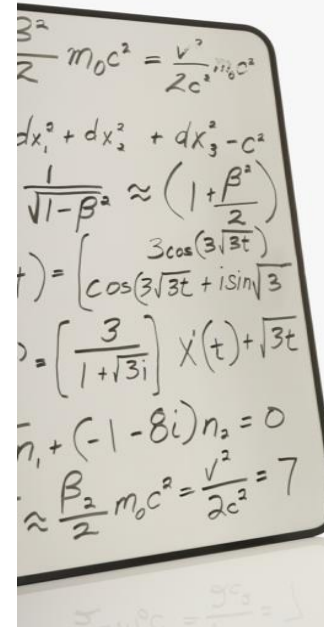 β²/2 m₀c² = v²/2c² m₀c²
dx₁² + dx₂² + dx₃² - c²
1/√(1-β²) ≈ (1 + β²/2)
t) = [3cos(3√3t)
cos(3√3t + isin√3
) = [3/(1+√3i)] X(t) + √3t
n₁ + (-1-8i)n₂ = 0
≈ β₂/2 m₀c² = v²/2c² = 7